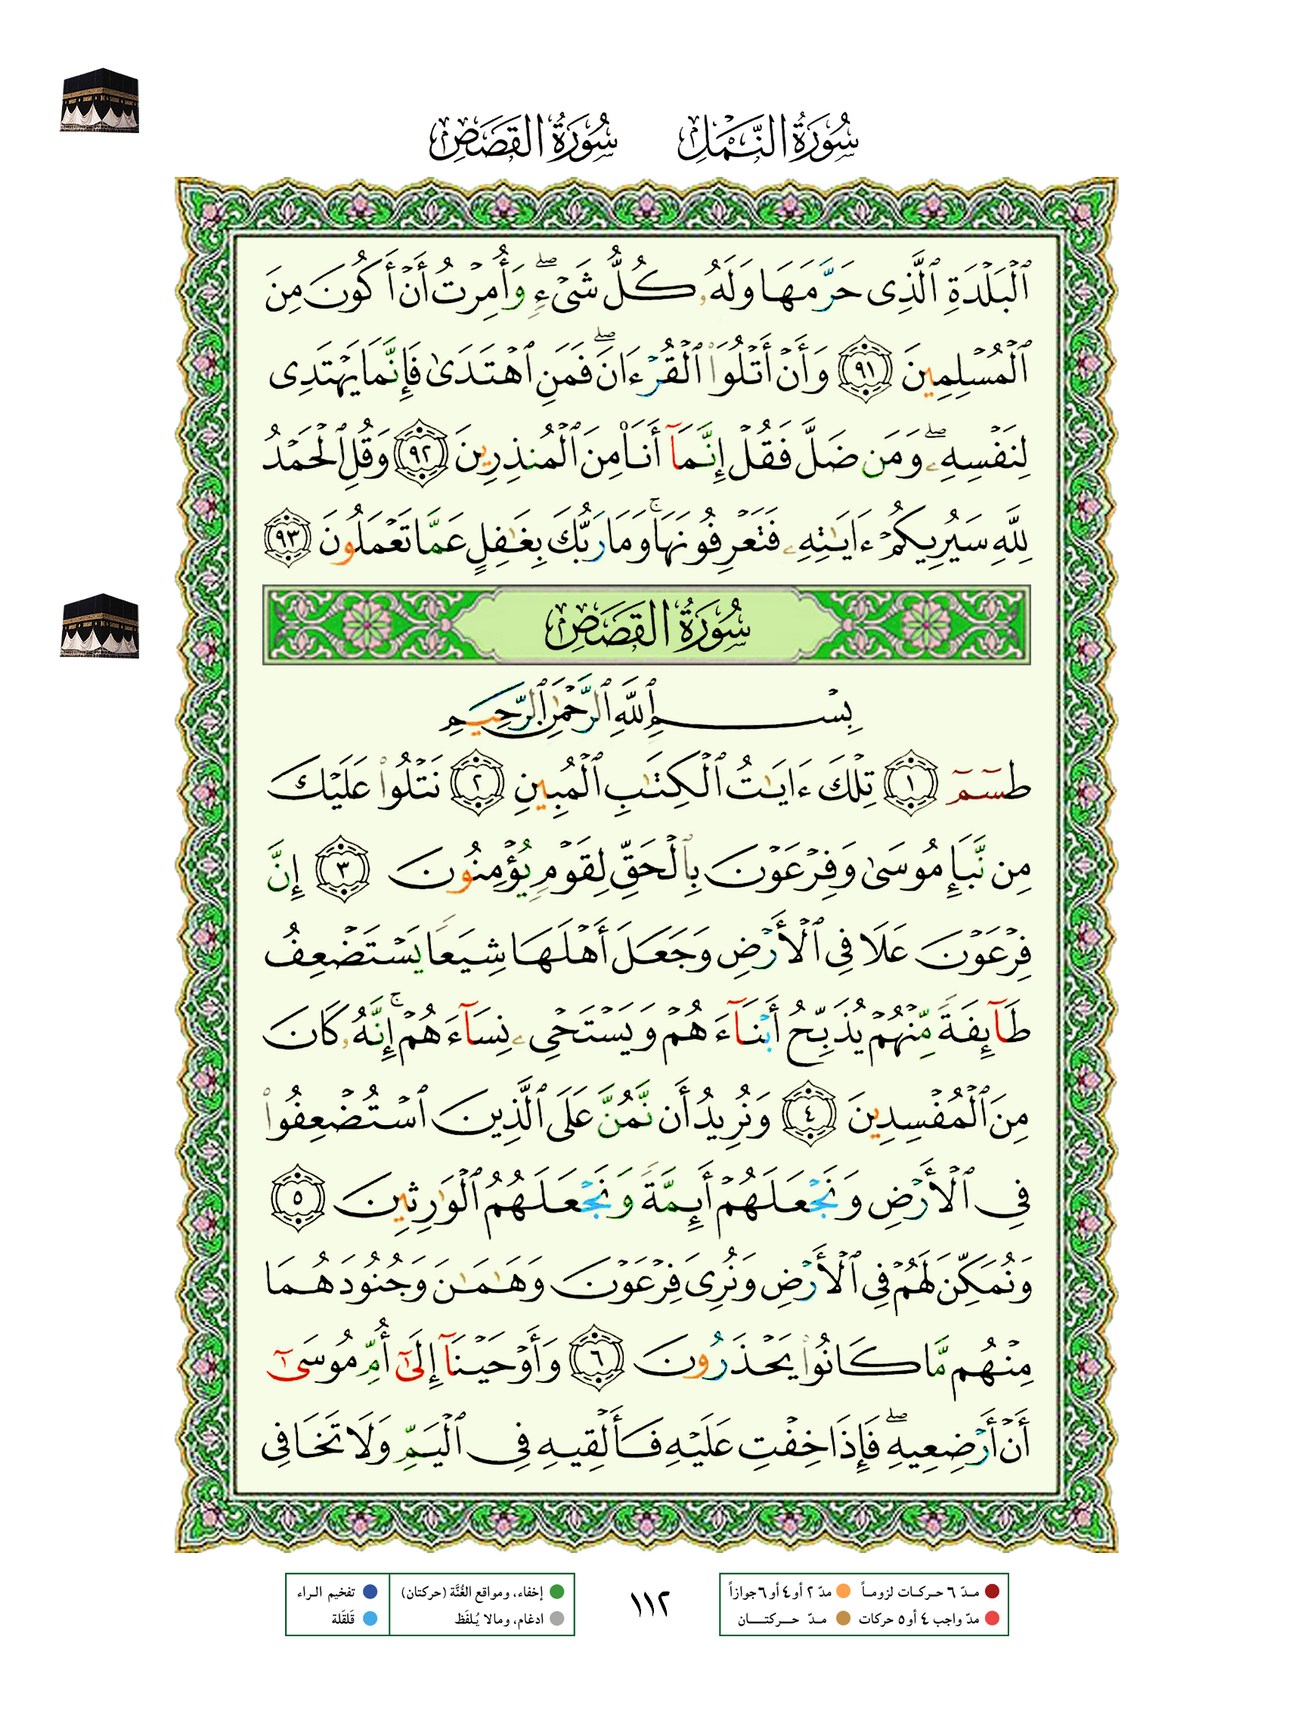 سُورَةُ النَّمْلِ سُورَةُ القَصَصِ
ٱلْبَلْدَةِ ٱلَّذِى حَرَّمَهَا وَلَهُۥ كُلُّ شَىْءٍۖ وَأُمِرْتُ أَنْ أَكُونَ مِنَ
ٱلْمُسْلِمِينَ ٩١ وَأَنْ أَتْلُوَا۟ ٱلْقُرْءَانَۖ فَمَنِ ٱهْتَدَىٰ فَإِنَّمَا يَهْتَدِى
لِنَفْسِهِۦۖ وَمَن ضَلَّ فَقُلْ إِنَّمَآ أَنَا۠ مِنَ ٱلْمُنذِرِينَ ٩٢ وَقُلِ ٱلْحَمْدُ
لِلَّهِ سَيُرِيكُمْ ءَايَٰتِهِۦ فَتَعْرِفُونَهَاۚ وَمَا رَبُّكَ بِغَٰفِلٍ عَمَّا تَعْمَلُونَ ٩٣
سُورَةُ القَصَصِ
بِسْمِ ٱللَّهِ ٱلرَّحْمَٰنِ ٱلرَّحِيمِ
طسٓمٓ ١ تِلْكَ ءَايَٰتُ ٱلْكِتَٰبِ ٱلْمُبِينِ ٢ نَتْلُوا۟ عَلَيْكَ
مِن نَّبَإِ مُوسَىٰ وَفِرْعَوْنَ بِٱلْحَقِّ لِقَوْمٍ يُؤْمِنُونَ ٣ إِنَّ
فِرْعَوْنَ عَلَا فِى ٱلْأَرْضِ وَجَعَلَ أَهْلَهَا شِيَعًا يَسْتَضْعِفُ
طَآئِفَةً مِّنْهُمْ يُذَبِّحُ أَبْنَآءَهُمْ وَيَسْتَحْىِۦ نِسَآءَهُمْۚ إِنَّهُۥ كَانَ
مِنَ ٱلْمُفْسِدِينَ ٤ وَنُرِيدُ أَن نَّمُنَّ عَلَى ٱلَّذِينَ ٱسْتُضْعِفُوا۟
فِى ٱلْأَرْضِ وَنَجْعَلَهُمْ أَئِمَّةً وَنَجْعَلَهُمُ ٱلْوَٰرِثِينَ ٥
وَنُمَكِّنَ لَهُمْ فِى ٱلْأَرْضِ وَنُرِىَ فِرْعَوْنَ وَهَٰمَٰنَ وَجُنُودَهُمَا
مِنْهُم مَّا كَانُوا۟ يَحْذَرُونَ ٦ وَأَوْحَيْنَآ إِلَىٰٓ أُمِّ مُوسَىٰٓ
أَنْ أَرْضِعِيهِۖ فَإِذَا خِفْتِ عَلَيْهِ فَأَلْقِيهِ فِى ٱلْيَمِّ وَلَا تَخَافِى
مدّ ٦ حركات لزوماً مدّ ٢ أو ٤ أو ٦ جوازاً
مدّ واجب ٤ أو ٥ حركات مدّ حركتان
١١٢
إخفاء، ومواقع الغُنَّة (حركتان) تفخيم الراء
ادغام، ومالا يُلفَظ قَلقَلة